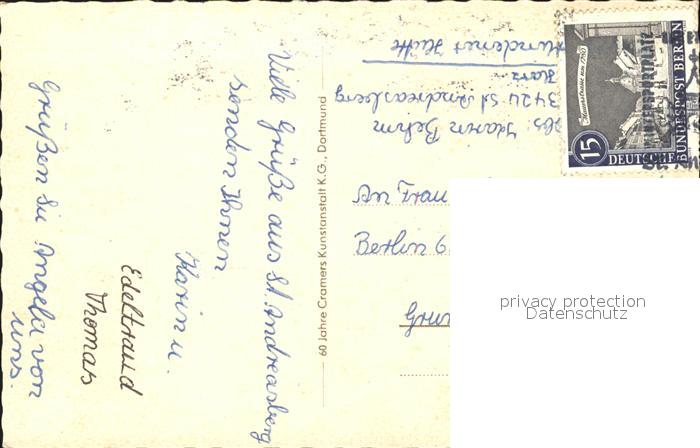 Viele Grüße aus St. Andreasberg
senden Ihnen
Karin u.
Edeltraud
Thomas
Grüßen Sie Angela von
uns.
60 Jahre Cramers Kunstanstalt K.G., Dortmund
Abs: Karin Behm
3424 St. Andreasberg
Harz
Hütte
15
DEUTSCHE
BUNDESPOST BERLIN
WINTERSPORTPLATZ
An Frau
Berlin 6
privacy protection
Datenschutz